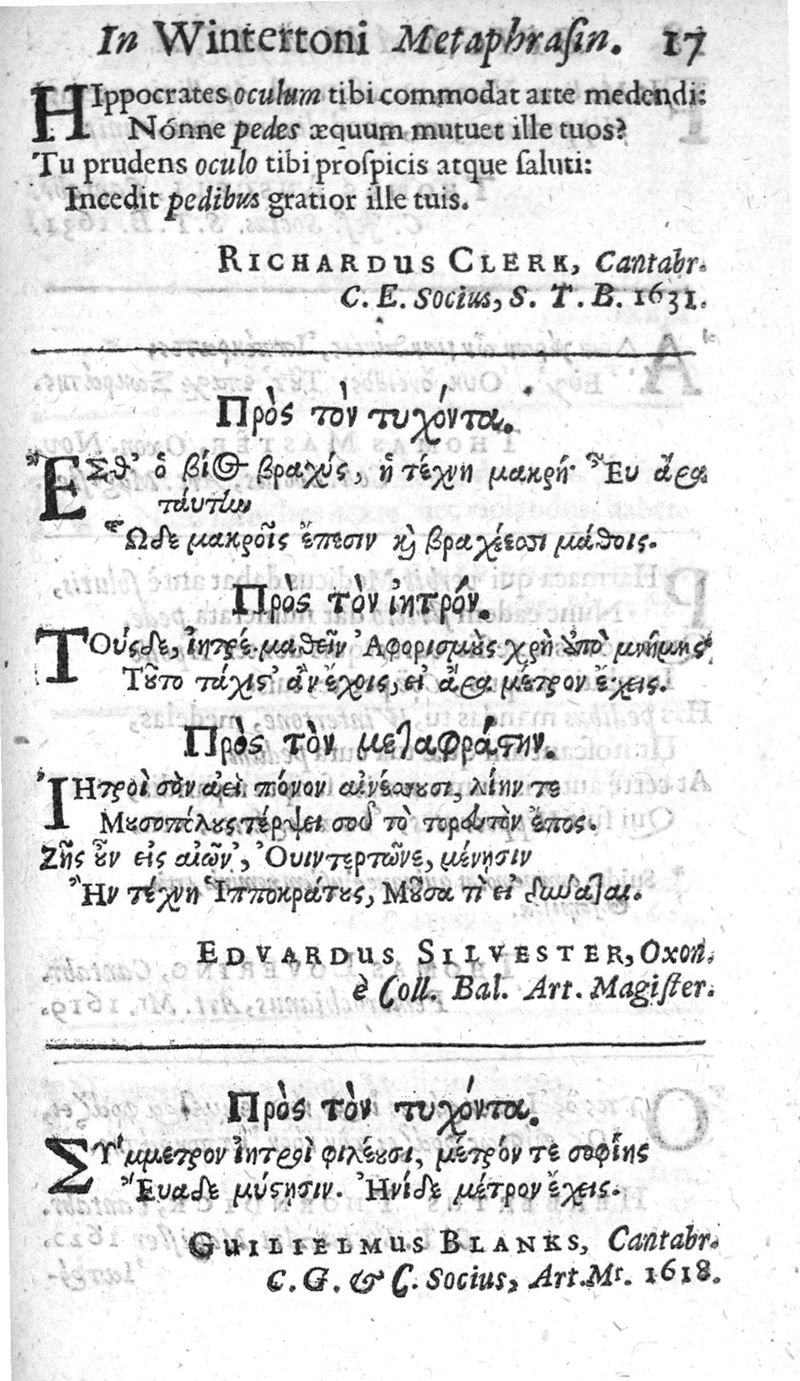 In Wintertoni Metaphraſin. 17
HIppocrates oculum tibi commodat arte medendi:
Nónne pedes æquum mutuet ille tuos?
Tu prudens oculo tibi proſpicis atque ſaluti:
Incedit pedibus gratior ille tuis.
RICHARDUS CLERK, Cantabr.
C. E. Socius, S. T. B. 1631.
Πρὸς τὸν τυχόντα.
ἜΣθ' ὁ βίος βραχύς, ἡ τέχνη μακρή· Ἒυ ἄρα
ταύτην
Ὧδε μακροῖς ἔπεσιν καὶ βραχέεσσι μάθοις.
Πρὸς τὸν ἰητρόν.
ΤΟύςδε, ἰητρέ, μαθεῖν Ἀφορισμοὺς χρὴ ὑπὸ μνήμης·
Τοῦτο τάχιστ' ἂν ἔχοις, εἰ ἄρα μέτρον ἔχεις.
Πρὸς τὸν μεταφράστην.
ἸΗτροὶ σὸν ἀεὶ πόνον αἰνέουσι, λίην τε
Μουσοπόλους τέρψει σοῦ τὸ τορευτὸν ἔπος.
Ζῇς οὖν εἰς αἰῶν', Ὀυιντερτῶνε, μένησιν
Ἢν τέχνη Ἱπποκράτους, Μοῦσα τὶ εἰ δύναται.
EDVARDUS SILVESTER, Oxon.
è Coll. Bal. Art. Magiſter.
Πρὸς τὸν τυχόντα.
ΣΎμμετρον ἰητροὶ φιλέουσι, μέτρόν τε σοφίης
Ἔυαδε μύστῃσιν. Ἠνίδε μέτρον ἔχεις.
GUILIELMUS BLANKS, Cantabr.
C. G. & C. Socius, Art. Mr. 1618.